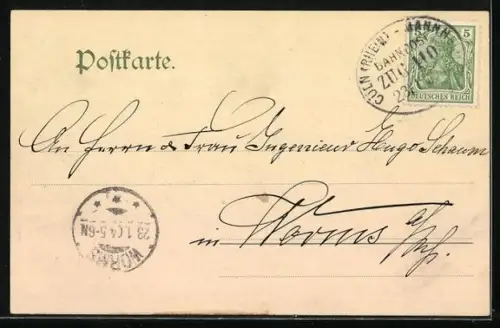 Postkarte.
CÖLN (RHEIN) - MANNH
BAHNPOST
ZUG 110
23
5
DEUTSCHES REICH
An Herrn & Frau Ingenieur Hugo Schaum
WORMS
23.1.
5-6N
in Worms a/Rh.